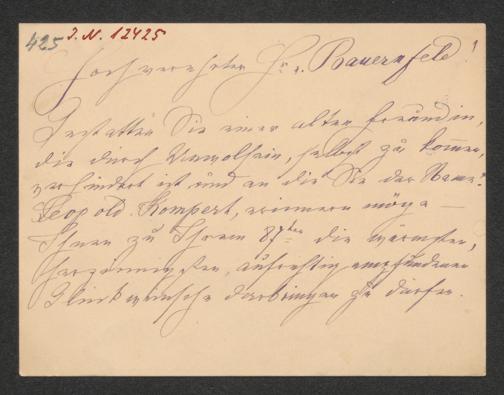 425 J. N. 12425
Hochverehrter Hr. v. Bauernfeld!
Gestatten Sie einer alten Freundin,
die durch Unwolsein, selbst zu komen,
verhindert ist und an die Sie der Name:
Leopold Kompert, erinnern möge —
Ihnen zu Ihrem 87ten die wärmsten,
herzinnigsten, aufrichtig empfundenen
Glückwünsche darbringen zu dürfen.